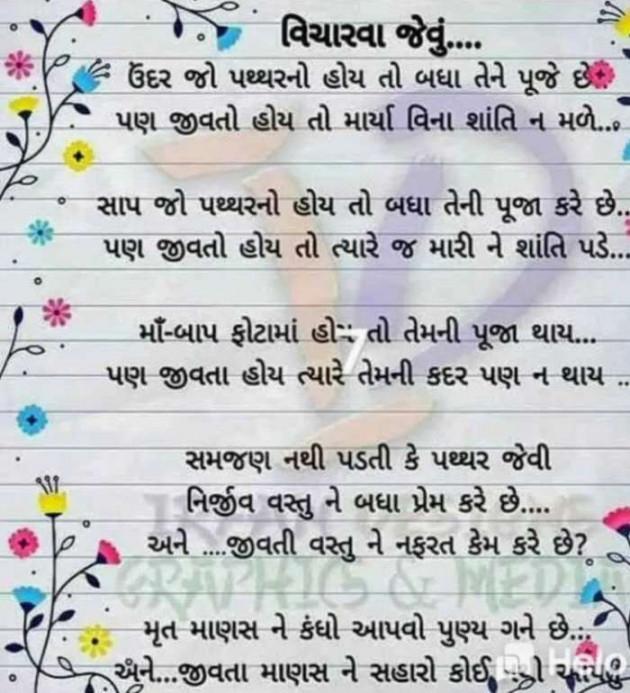 વિચારવા જેવું....
ઉંદર જો પથ્થરનો હોય તો બધા તેને પૂજે છે
પણ જીવતો હોય તો માર્યા વિના શાંતિ ન મળે...
સાપ જો પથ્થરનો હોય તો બધા તેની પૂજા કરે છે..
પણ જીવતો હોય તો ત્યારે જ મારી ને શાંતિ પડે...
માઁ-બાપ ફોટામાં હોય તો તેમની પૂજા થાય...
પણ જીવતા હોય ત્યારે તેમની કદર પણ ન થાય ..
સમજણ નથી પડતી કે પથ્થર જેવી
નિર્જીવ વસ્તુ ને બધા પ્રેમ કરે છે....
અને ....જીવતી વસ્તુ ને નફરત કેમ કરે છે?
GRAPHICS & MEDIA
મૃત માણસ ને કંધો આપવો પુણ્ય ગને છે...
અને...જીવતા માણસ ને સહારો કોઈ
Helo